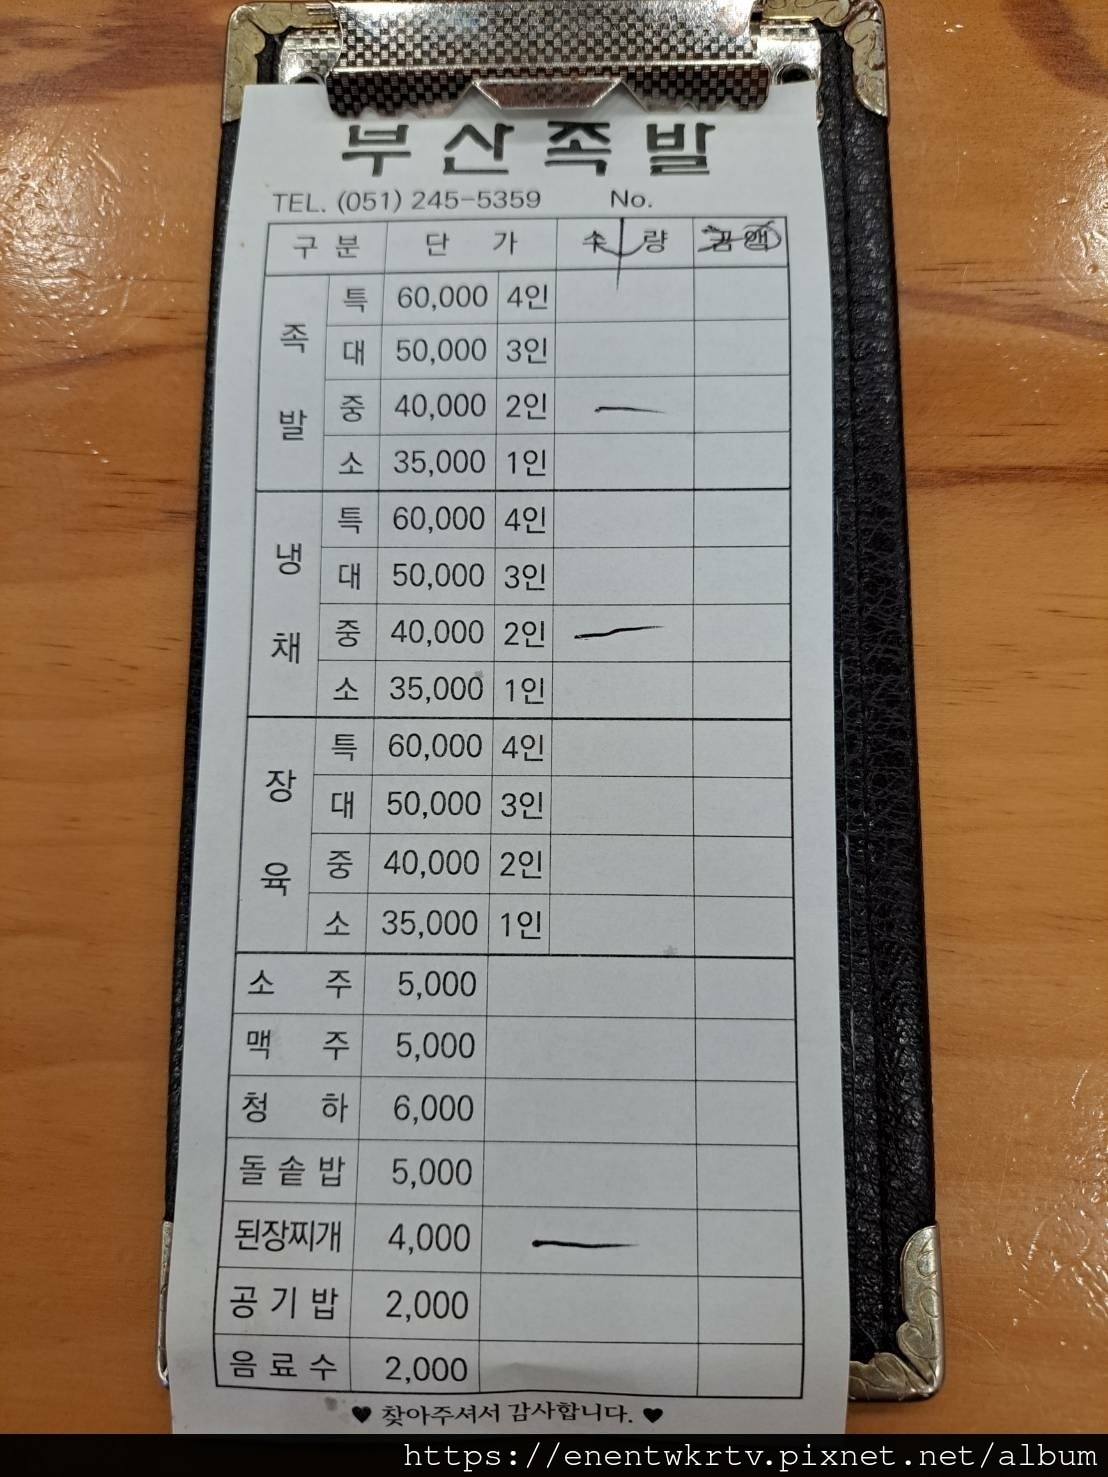 부산족발
TEL. (051) 245-5359 No.
구분 단가 수량 금액
족발 특 60,000 4인
대 50,000 3인
중 40,000 2인 一
소 35,000 1인
냉채 특 60,000 4인
대 50,000 3인
중 40,000 2인 一
소 35,000 1인
장육 특 60,000 4인
대 50,000 3인
중 40,000 2인
소 35,000 1인
소주 5,000
맥주 5,000
청하 6,000
돌솥밥 5,000
된장찌개 4,000 一
공기밥 2,000
음료수 2,000
♥ 찾아주셔서 감사합니다. ♥
https://enentwkrtv.pixnet.net/album